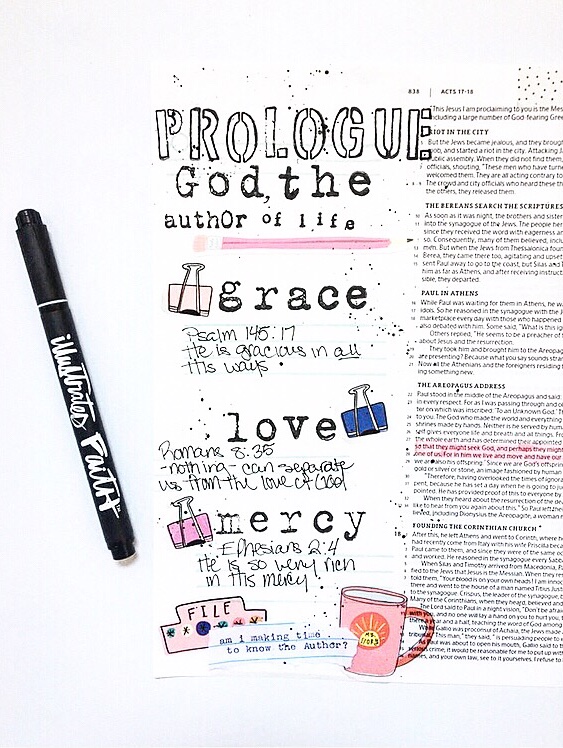 illustrated Faith
PROLOGUE
God, the
authOr of life
grace
Psalm 145:17
He is gracious in all
His ways.
love
Romans 8:35
-nothing- can separate
us from the love of God
mercy
Ephesians 2:4
He is so very rich
in His mercy
FILE
am i making time
to know the Author?
838 | ACTS 17-18
"This Jesus I am proclaiming to you is the
including a large number of God-fearing
RIOT IN THE CITY
But the Jews became jealous, and they
and started a riot in the city. Attacking
assembly. When they did not find them,
officials, shouting, "These men who have
welcomed them. They are all acting contrary to
The crowd and city officials who heard these
they released them.
THE BEREANS SEARCH THE SCRIPTURES
As soon as it was night, the brothers and
into the synagogue of the Jews. The people
since they received the word with eagerness and
so. Consequently, many of them believed,
men. But when the Jews from Thessalonica
Berea, they came there too, agitating and
sent Paul away to go to the coast, but Silas and
him as far as Athens, and after receiving
they departed.
PAUL IN ATHENS
While Paul was waiting for them in Athens, he
idols. So he reasoned in the synagogue with the
marketplace every day with those who happened
also debated with him. Some said, "What is this
Others replied, "He seems to be a preacher of
about Jesus and the resurrection.
They took him and brought him to the
are presenting? Because what you say sounds
Now all the Athenians and the foreigners residing
something new.
THE AREOPAGUS ADDRESS
Paul stood in the middle of the Areopagus and said:
in every respect. For as I was passing through
on which was inscribed: 'To an Unknown God.'
to you. The God who made the world and everything
shrines made by hands. Neither is he served by
gives everyone life and breath and all things.
the whole earth and has determined their appointed
so that they might seek God, and perhaps they might
one of us. For in him we live and move and have our
we are also his offspring.' Since we are God's offspring
gold or silver or stone, an image fashioned by human
"Therefore, having overlooked the times of
because he has set a day when he is going to
appointed. He has provided proof of this to everyone by
When they heard about the resurrection of the
like to hear from you again about this." So Paul left
including Dionysius the Areopagite, a woman
FOUNDING THE CORINTHIAN CHURCH
After this, he left Athens and went to Corinth, where he
had recently come from Italy with his wife Priscilla
Paul came to them, and since they were of the same
and worked. He reasoned in the synagogue every
When Silas and Timothy arrived from Macedonia,
to the Jews that Jesus is the Messiah. When they
told them, "Your blood is on your own heads! I am
there and went to the house of a man named Titius
to the synagogue. Crispus, the leader of the synagogue,
Many of the Corinthians, when they heard, believed and
The Lord said to Paul in a night vision, "Don't be
with you, and no one will lay a hand on you to hurt you,
a year and a half, teaching the word of God among
While Gallio was proconsul of Achaia, the Jews made
"This man," they said, "is persuading people to
As Paul was about to open his mouth, Gallio said to the
crime, it would be reasonable for me to put up with
names, and your own law, see to it yourselves. I refuse to